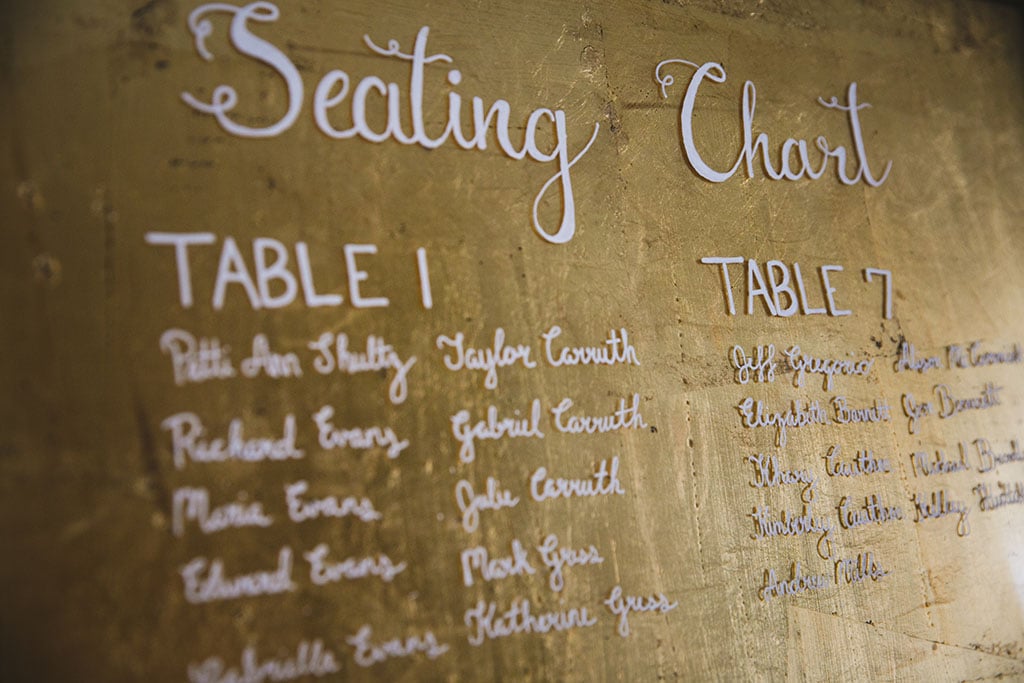 Seating Chart
TABLE 1
Patti Ann Shultz
Richard Evans
Maria Evans
Edward Evans
Gabrialla Evans
Taylor Carruth
Gabriel Carruth
Julie Carruth
Mark Gress
Katherine Gress
TABLE 7
Jeff Gregorio
Elizabeth
Kimberley
Andrew Mills
Alison Mc Cormick
Joe Bennett
Michael
Kelley